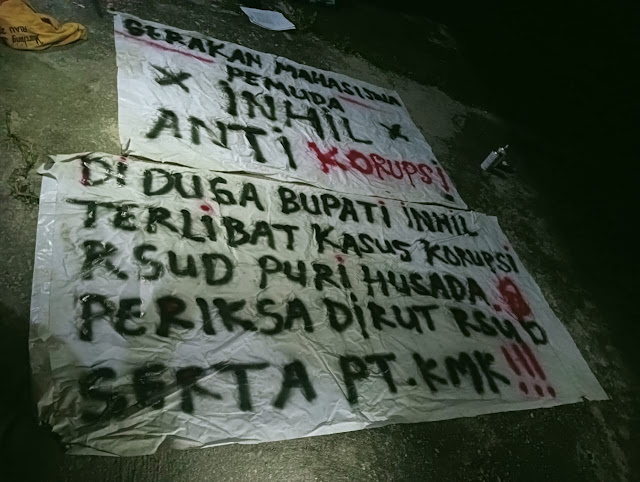 GERAKAN MAHASISWA
PEMUDA
INHIL
ANTI KORUPSI!
DI DUGA BUPATI INHIL
TERLIBAT KASUS KORUPSI
RSUD PURI HUSADA.
PERIKSA DIRUT RSUD
SERTA PT. KMK!!!
RIAU